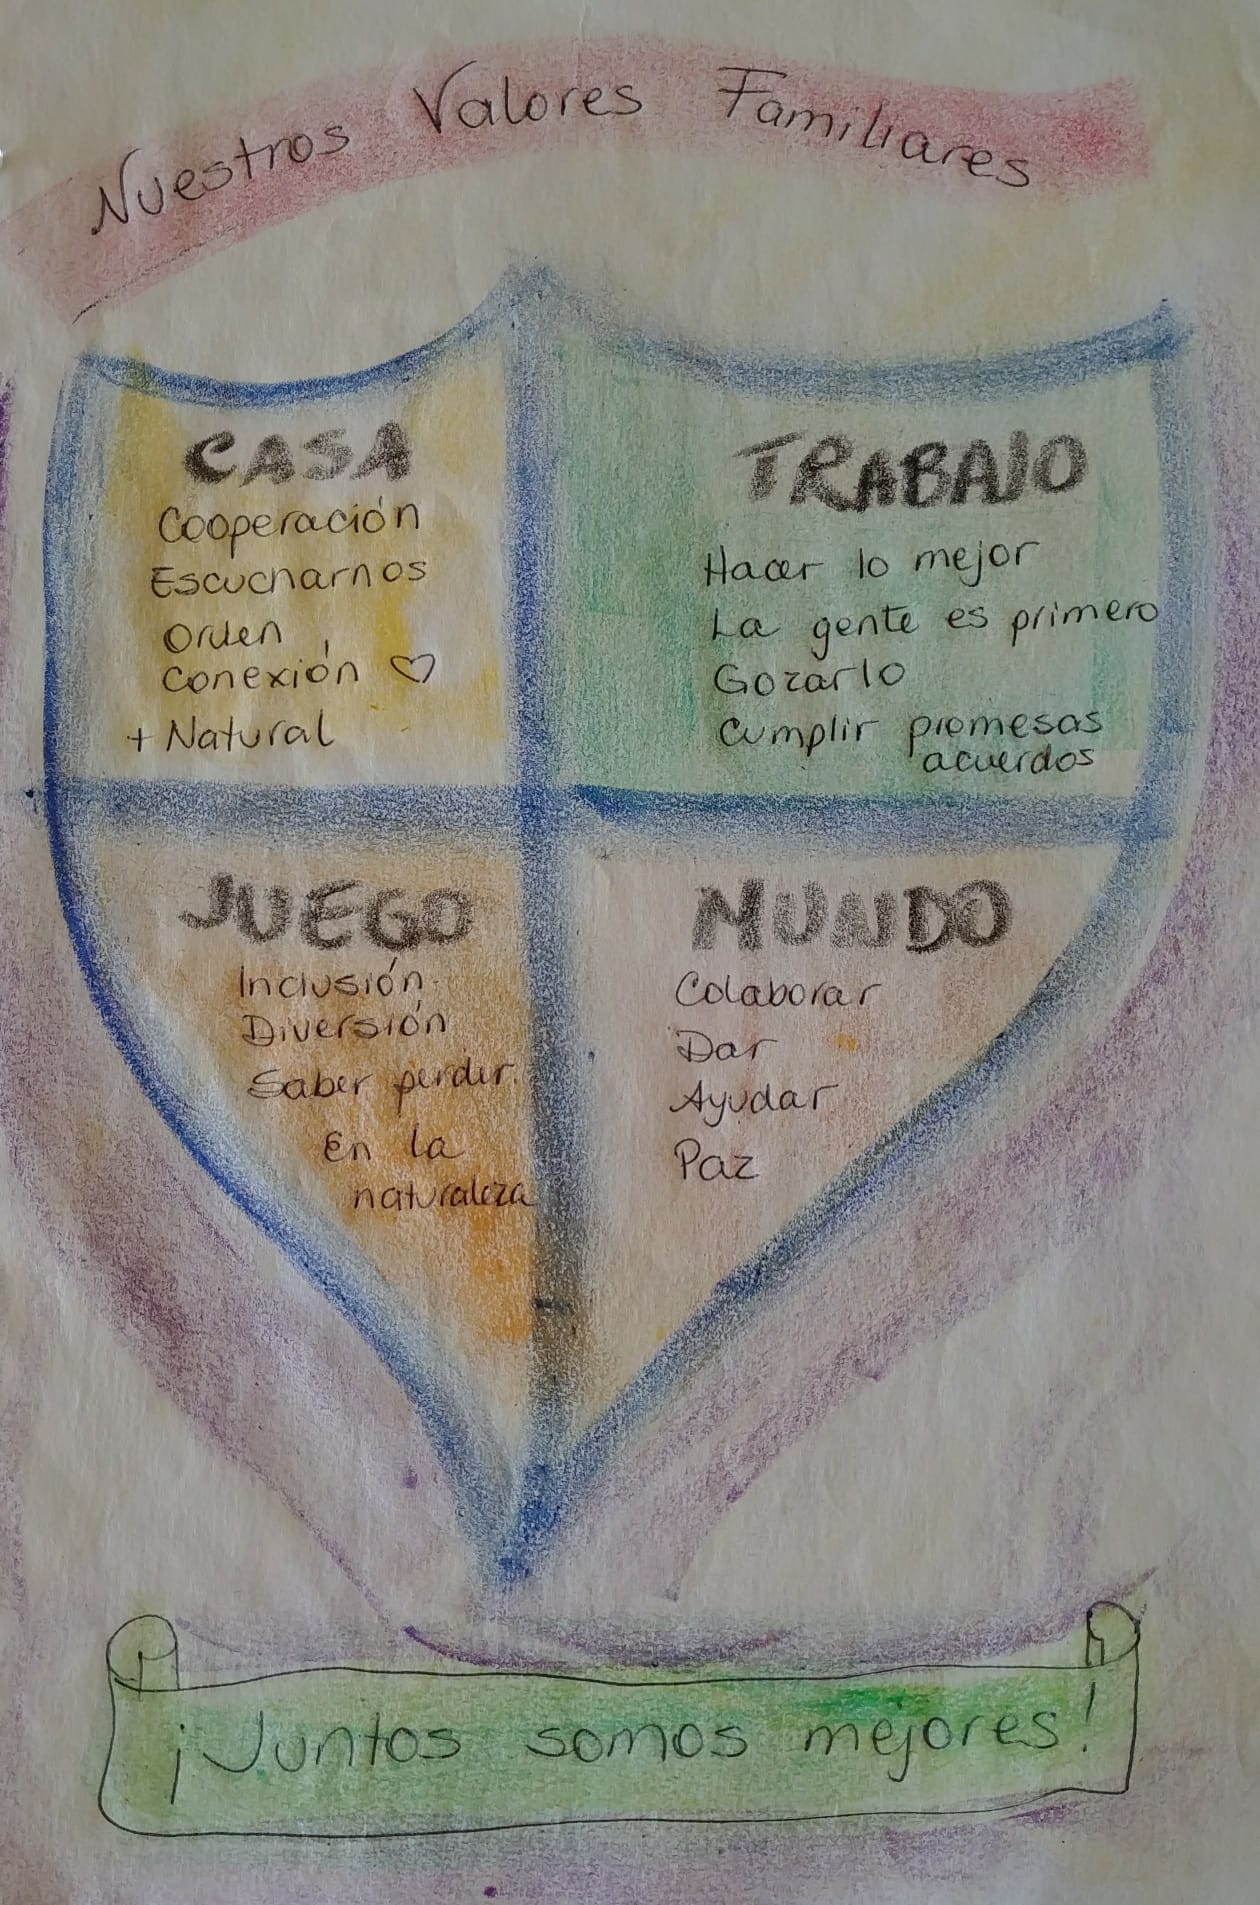 Nuestros Valores Familiares
CASA
Cooperación
Escucharnos
Orden
Conexión ♡
+ Natural
TRABAJO
Hacer lo mejor
La gente es primero
Gozarlo
Cumplir promesas
acuerdos
JUEGO
Inclusión
Diversión
Saber perder
En la
naturaleza
MUNDO
Colaborar
Dar
Ayudar
Paz
¡Juntos somos mejores!